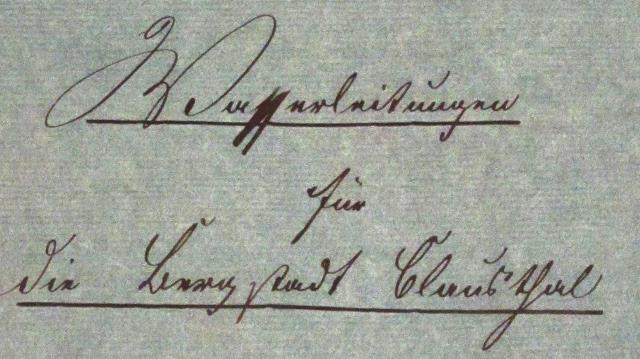 Wasserleitungen
für
die Bergstadt Clausthal